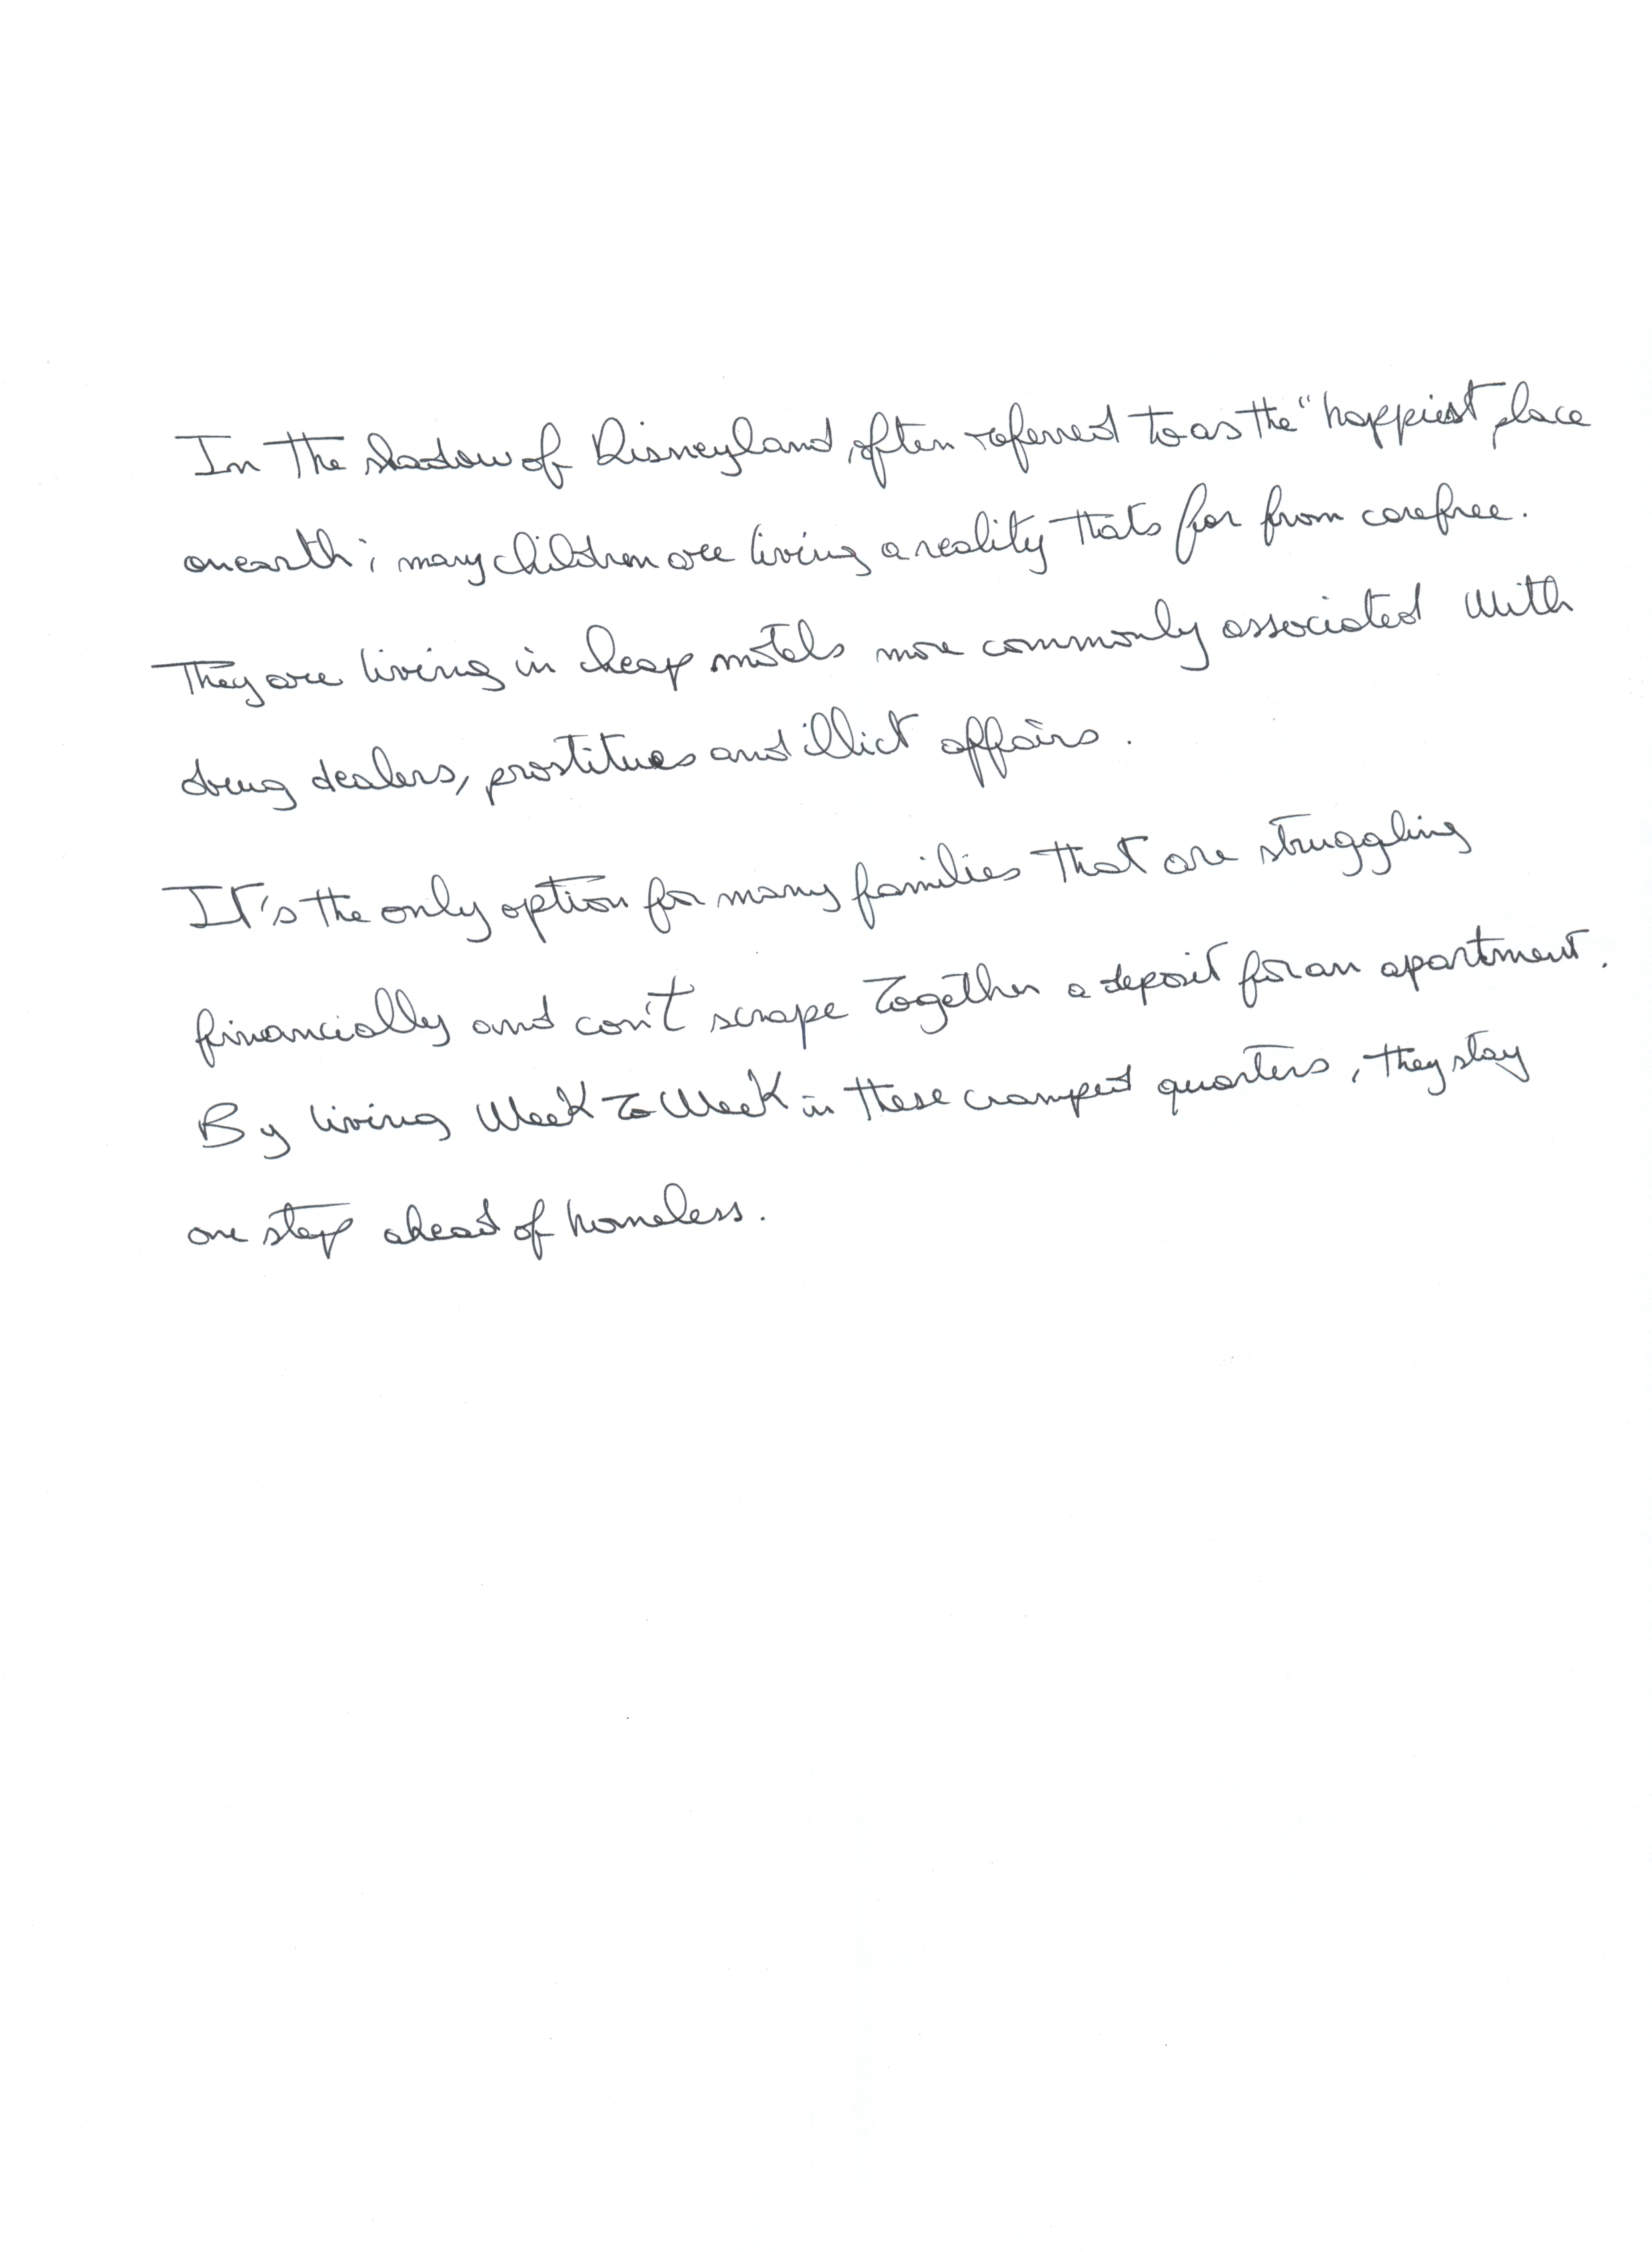 In the shadow of Disneyland, often referred to as the "happiest place
on earth; many children are living a reality thats far from carefree.
They are living in cheap motels more commonly associated with
drug dealers, prostitues and illict affairs.
It's the only option for many families that are struggling
financially and con't scrape together a deposit for an apartment.
By living week to week in these cramped quarters, they stay
one step ahead of homeless.